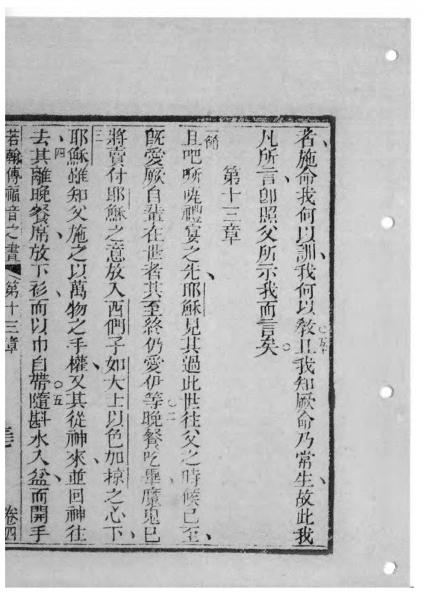 者施命我何以訓我何以敎且我知厥命乃常生故此我
五十
凡所言卽照父所示我而言矣
第十三章
節
且吧㖿咓禮宴之先耶穌見其過此世往父之時候已至
旣愛厥自輩在世者其至終仍愛伊等晚餐吃畢魔鬼已
二
將賣付耶穌之意放入西們子如大士以色加掠之心下
三
耶穌雖知父施之以萬物之手權又其從神來並回神往
四
去其離晚餐席放下衫而以巾自帶隨斟水入盆而開手
五
若翰傳福音之書
第十三章
卷四